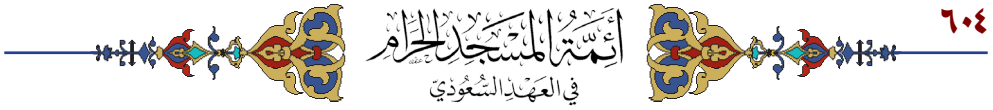 ٦٠٤
أَئِمَّةُ المَسْجِدِ الحَرَامِ
فِي العَهْدِ السُّعُودِيِّ